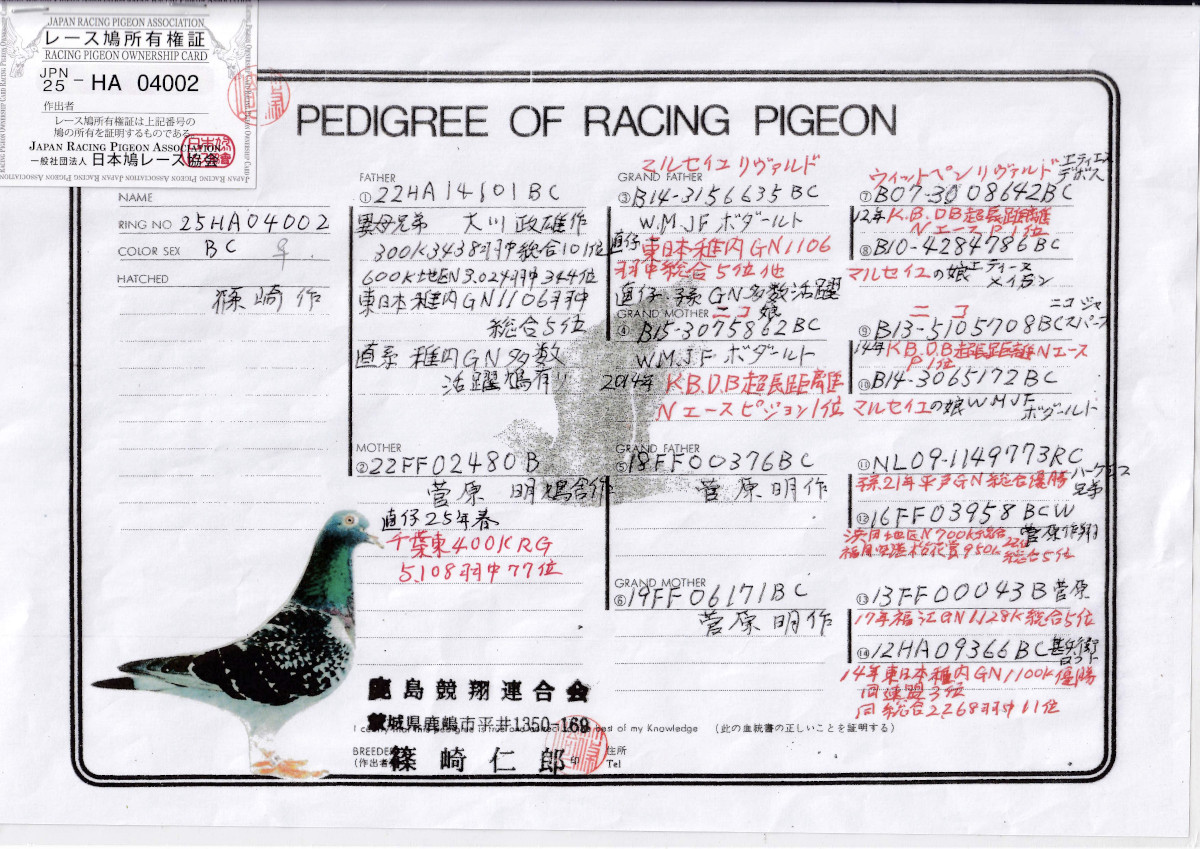 JAPAN RACING PIGEON ASSOCIATION
レース鳩所有権証
RACING PIGEON OWNERSHIP CARD
JPN
25 - HA 04002
作出者
レース鳩所有権証は上記番号の
鳩の所有を証明するものである
JAPAN RACING PIGEON ASSOCIATION
一般社団法人 日本鳩レース協会
PEDIGREE OF RACING PIGEON
NAME
RING NO 25HA04002
COLOR SEX BC ♀
HATCHED
篠崎 作
FATHER
①22HA14601BC
異母兄弟 大川政雄作
300K3438羽中総合101位
600K地区N3.024羽中344位
東日本稚内GN1106羽中
総合5位
直系 稚内GN多数
活躍鳩有り
MOTHER
②22FF02480B
菅原 明鳩舎作
直仔25年春
千葉東400KRG
5.108羽中77位
マルセイユ リヴァルド
GRAND FATHER
③B14-3156635BC
W.M.J.F ボダールト
直仔 東日本稚内GN1106
羽中総合5位他
直仔.孫GN多数活躍
GRAND MOTHER ニコ娘
④B15-3075862BC
W.M.J.F ボダールト
2014年 K.B.D.B超長距離
Nエースピジョン1位
GRAND FATHER
⑤18FF00376BC
菅原明作
GRAND MOTHER
⑥19FF06171BC
菅原明作
ウィットペンリヴァルド エティエンヌ
デボス
⑦B07-3008642BC
12年K.B.D.B超長距離
NエースP.1位
⑧B10-4284786BC
マルセイユの娘 エティーヌ
メイガン
ニコ ニコ ジャ
⑨B13-5105708BCスパース
14年K.B.D.B超長距離Nエース
P.1位
⑩B14-3065172BC
マルセイユの娘 WMJF
ボダールト
⑪NL09-1149773RC
孫21年平戸GN総合優勝 ハーゲンス
兄弟
⑫16FF03958BCW
地区N700K総合 菅原作翔
22位
950K 総合5位
⑬13FF00043B菅原
17年福江GN1128K総合5位
⑭12HA09366BC甚兵衛
ロフト
14年東日本稚内GN1100K優勝
同連盟3位
同総合2268羽中11位
鹿島競翔連合会
茨城県鹿嶋市平井1350-169
I certify that this pedigree is true and correct to the best of my Knowledge (此の血統書の正しいことを証明する)
BREEDER
(作出者) 篠崎仁郎 印
住所
Tel